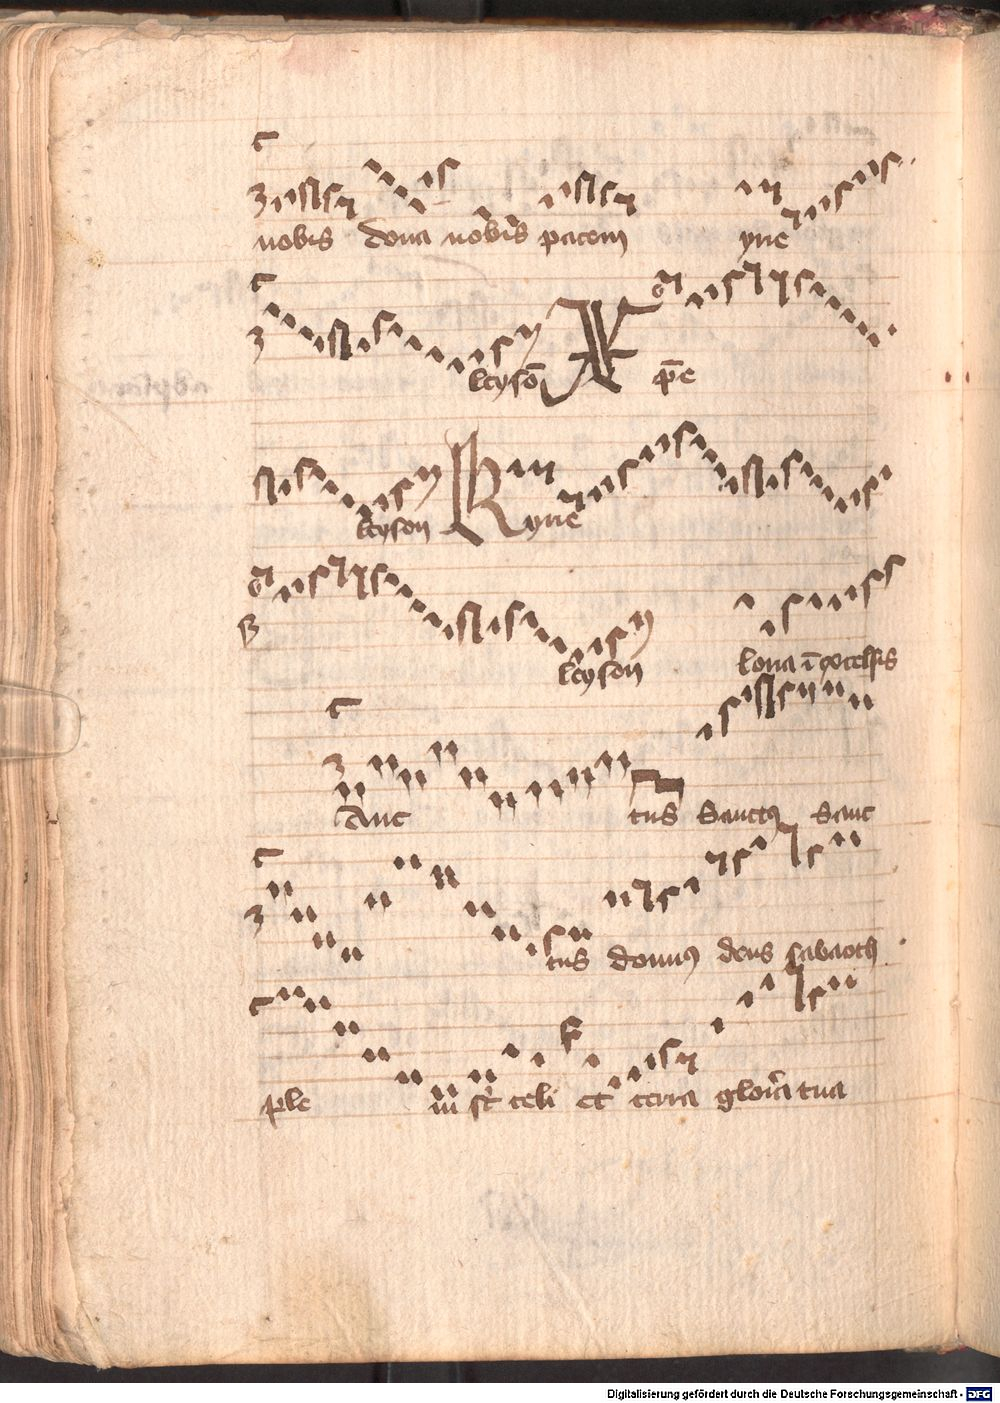 nobis dona nobis pacem yrie
leyson xpe
leyson Kyrie
leyson loria i excelsis
Anc tus Sanctus Sanc
tus dominus deus sabaoth
ple ni st celi et terra gloria tua
Digitalisierung gefördert durch die Deutsche Forschungsgemeinschaft - DFG